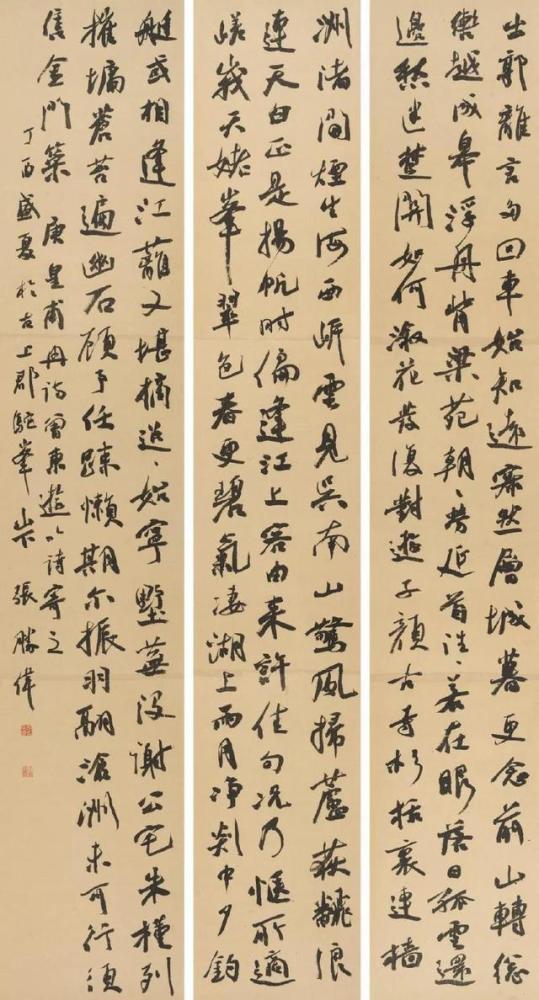 出郭離言多回車始知遠寂然層城暮更念前山轉總
轡越成皋浮舟背梁苑朝〻勞延首往〻若在眼落日孤雲還
邊愁迷楚關如何溆花發復對遊子顏古寺杉栝裏連檣
洲渚間煙生海西岸雲見吳南山驚風掃蘆荻翻浪
連天白正是揚帆時偏逢江上客由来許佳句况乃愜所適
嵯峩天姥峯翠色春更碧氣凄湖上雨月净剡中夕釣
艇或相逢江蘺又堪摘迢〻始寧墅蕪没謝公宅朱槿列
摧墉蒼苔遍幽石顧予任疎懶期尔振羽翮滄洲未可行須
售金門策 唐皇甫冉詩曾東遊以詩寄之
丁酉盛夏於古上郡駝峯山下 張勝偉